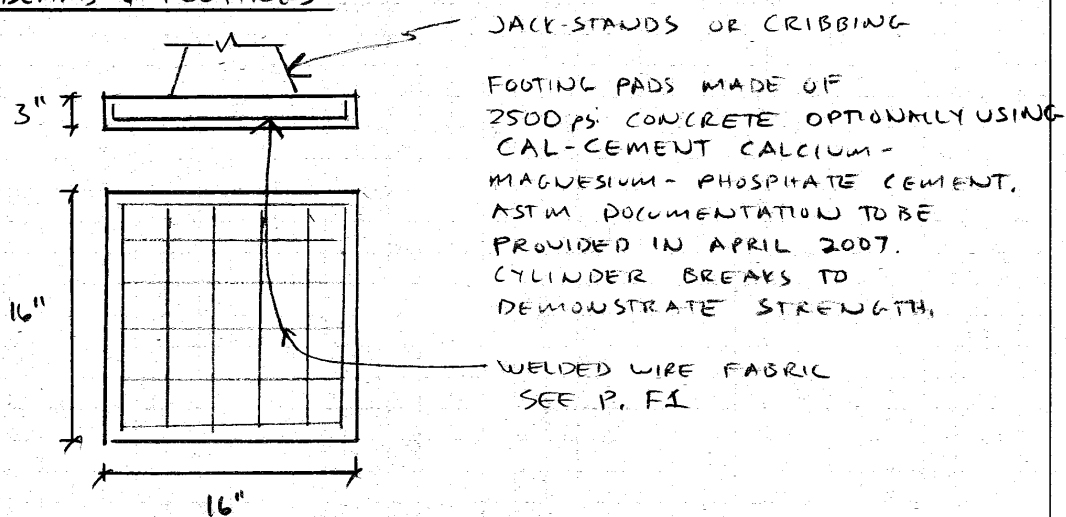 BEAMS & FOOTINGS
JACK-STANDS OR CRIBBING
3"
FOOTING PADS MADE OF
2500 psi CONCRETE OPTIONALLY USING
CAL-CEMENT CALCIUM-
MAGNESIUM-PHOSPHATE CEMENT.
ASTM DOCUMENTATION TO BE
PROVIDED IN APRIL 2007.
CYLINDER BREAKS TO
DEMONSTRATE STRENGTH.
16"
WELDED WIRE FABRIC
SEE P. F1
16"